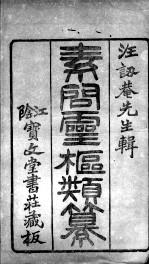 汪訒菴先生輯
素問靈樞類纂
江陰寶文堂書莊藏板